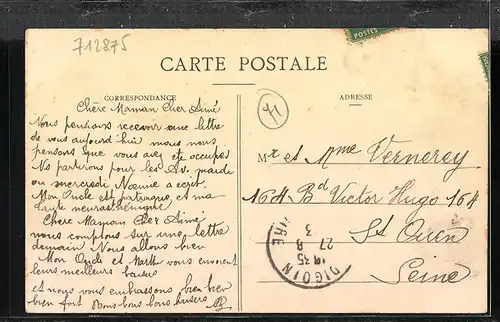 712875
POSTES
CARTE POSTALE
CORRESPONDANCE
ADRESSE
71
Chère Maman Cher Aimé
Nous pensions recevoir une lettre
de vous aujourd'hui mais nous
pensons que vous avez été occupés
Nous partirons pour les mardi
ou mercredi
Mon Oncle est patraque, et ma
tante neurasthénique
Chère Maman Cher Aimé
nous comptons sur une lettre
demain Nous allons bien
Mon Oncle et vous envoient
leurs meilleurs baisers
et nous vous embrassons bien bien
bien fort Bons bons bons baisers
Mr et Mme Vernerey
164 Bd Victor Hugo 164
St Ouen
Seine
DIGOIN
18 35
27 8
3